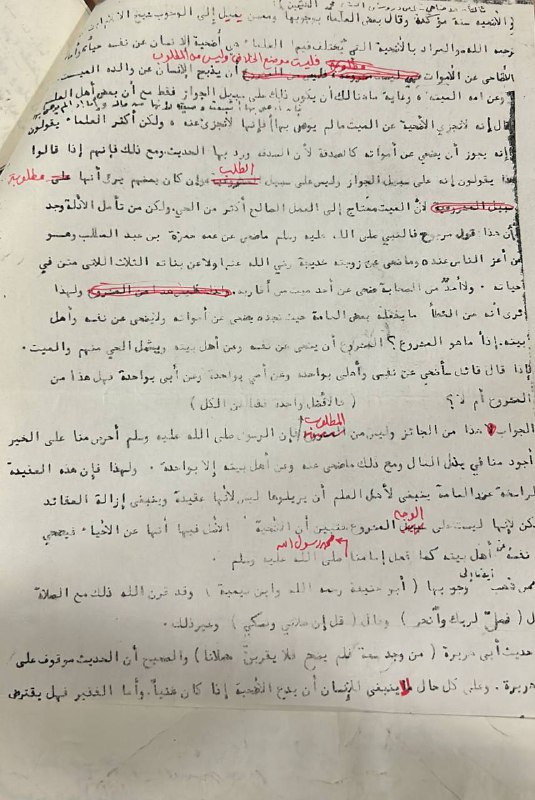 في الأضحية سنة مؤكدة وقال بعض العلماء بوجوبها وممن يميل إلى الوجوب شيخ الإسلام
رحمه الله والمراد بالأضحية التي يختلف فيها العلماء هي أضحية الإنسان عن نفسه حياً
الأضاحي عن الأموات فليست موضع الخلاف وليس من المطلوب أن يذبح الإنسان عن والده الميت
وعن أمه الميتة وغاية ما هنالك أن يكون ذلك على سبيل الجواز فقط مع أن بعض أهل العلم
قال إنه لا تجزي الأضحية عن الميت ما لم يوص بها فإنها لا تجزئ عنه ولكن أكثر العلماء يقولون
إنه يجوز أن يضحي عن أمواته كالصدقة لأن الصدقة ورد بها الحديث ومع ذلك فإنهم إذا قالوا
هذا يقولون إنه على سبيل الجواز وليس على سبيل الطلب وإن كان بعضهم يرى أنها مطلوبة
لأن الميت محتاج إلى العمل الصالح أكثر من الحي ولكن من تأمل الأدلة وجد
أن هذا قول مرجوح فالنبي صلى الله عليه وسلم ما ضحى عن عمه حمزة بن عبد المطلب وهو
من أعز الناس عنده وما ضحى عن زوجته خديجة رضي الله عنها ولا عن بناته الثلاث اللاتي متن في
حياته ولا أحد من الصحابة ضحى عن أحد ميت من أقاربه ولهذا
نرى أنه من الخطأ ما يفعله بعض العامة حيث تجده يضحي عن أمواته ولا يضحي عن نفسه وأهل
بيته. إذاً ما هو المشروع؟ المشروع أن يضحي عن نفسه وعن أهل بيته ويشمل الحي منهم والميت.
فإذا قال قائل سأضحي عن نفسي وأهلي بواحدة وعن أمي بواحدة وعن أبي بواحدة فهل هذا من
المشروع أم لا؟ ( فالأفضل واحدة عن الكل )
الجواب هذا من الجائز وليس من المطلوب فإن الرسول صلى الله عليه وسلم أحرص منا على الخير
أجود منا في بذل المال ومع ذلك ما ضحى عنه وعن أهل بيته إلا بواحدة . ولهذا فإن هذه العقيدة
الراسخة عند العامة ينبغي لأهل العلم أن يزيلوها ليس لأنها عقيدة وينبغي إزالة العقائد
لكن لإنها ليست على الوجه المشروع فنبين أن التضحية الأصل فيها أنها عن الأحياء فيضحي
نفسه عن أهل بيته كما فعل إمامنا محمد رسول الله صلى الله عليه وسلم .
ممن ذهب أيضا إلى وجوبها ( أبو حنيفة رحمه الله وابن تيمية ) وقد قرن الله ذلك مع الصلاة
ل ( فصل لربك وأنحر ) وقال ( قل إن صلاتي ونسكي ) وغير ذلك .
حديث أبي هريرة ( من وجد سعة فلم يضح فلا يقربن مصلانا ) والصحيح أن الحديث موقوف على
هريرة . وعلى كل حال لا ينبغي للإنسان أن يدع الأضحية إذا كان غنياً. وأما الفقير فهل يقترض